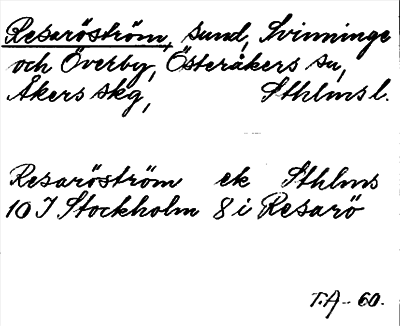 Resaröström, sund, Svinninge
och Överby, Österåkers sn,
Åkers skg, Sthlms l.
Resaröström ek Sthlms
10 J Stockholm 8 i Resarö
T.A - 60.